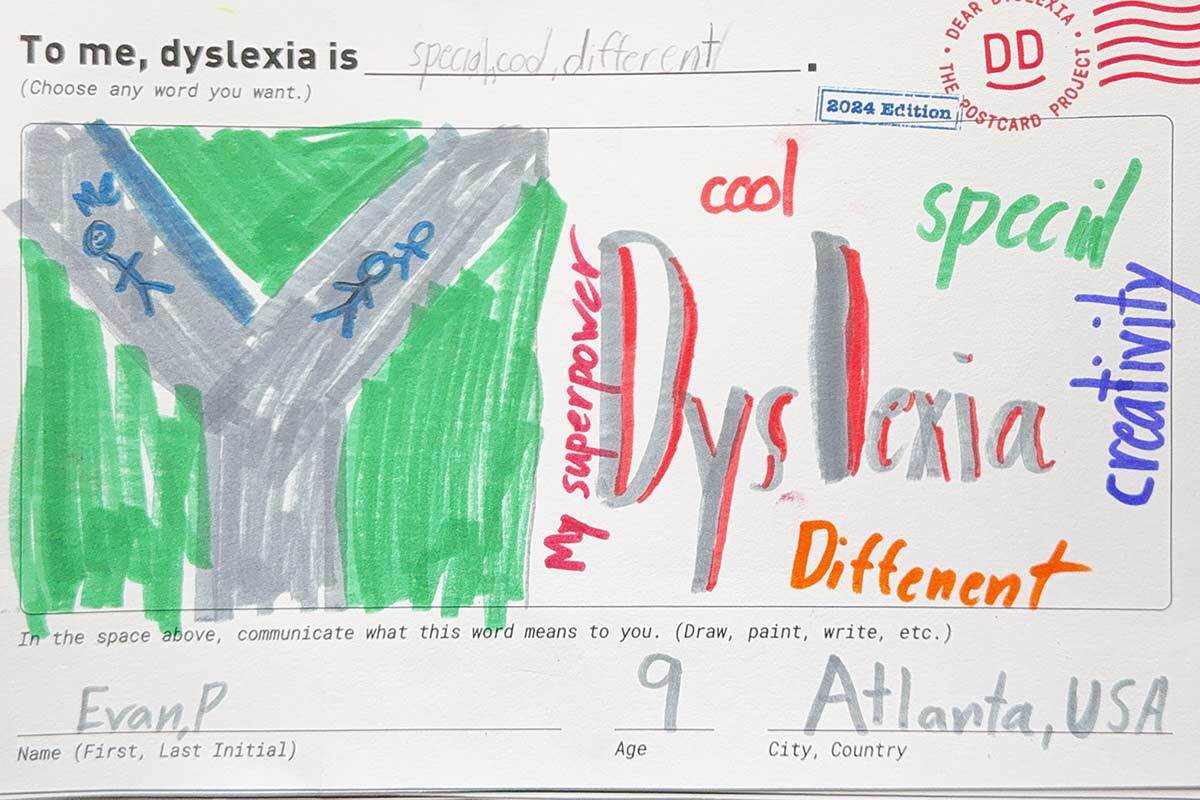 To me, dyslexia is special,cool,different.
(Choose any word you want.)
DEAR DYSLEXIA
DD
THE POSTCARD PROJECT
2024 Edition
Me
cool
special
My superpower
Dyslexia
creativity
Different
In the space above, communicate what this word means to you. (Draw, paint, write, etc.)
Evan,P
9
Atlanta, USA
Name (First, Last Initial)
Age
City, Country